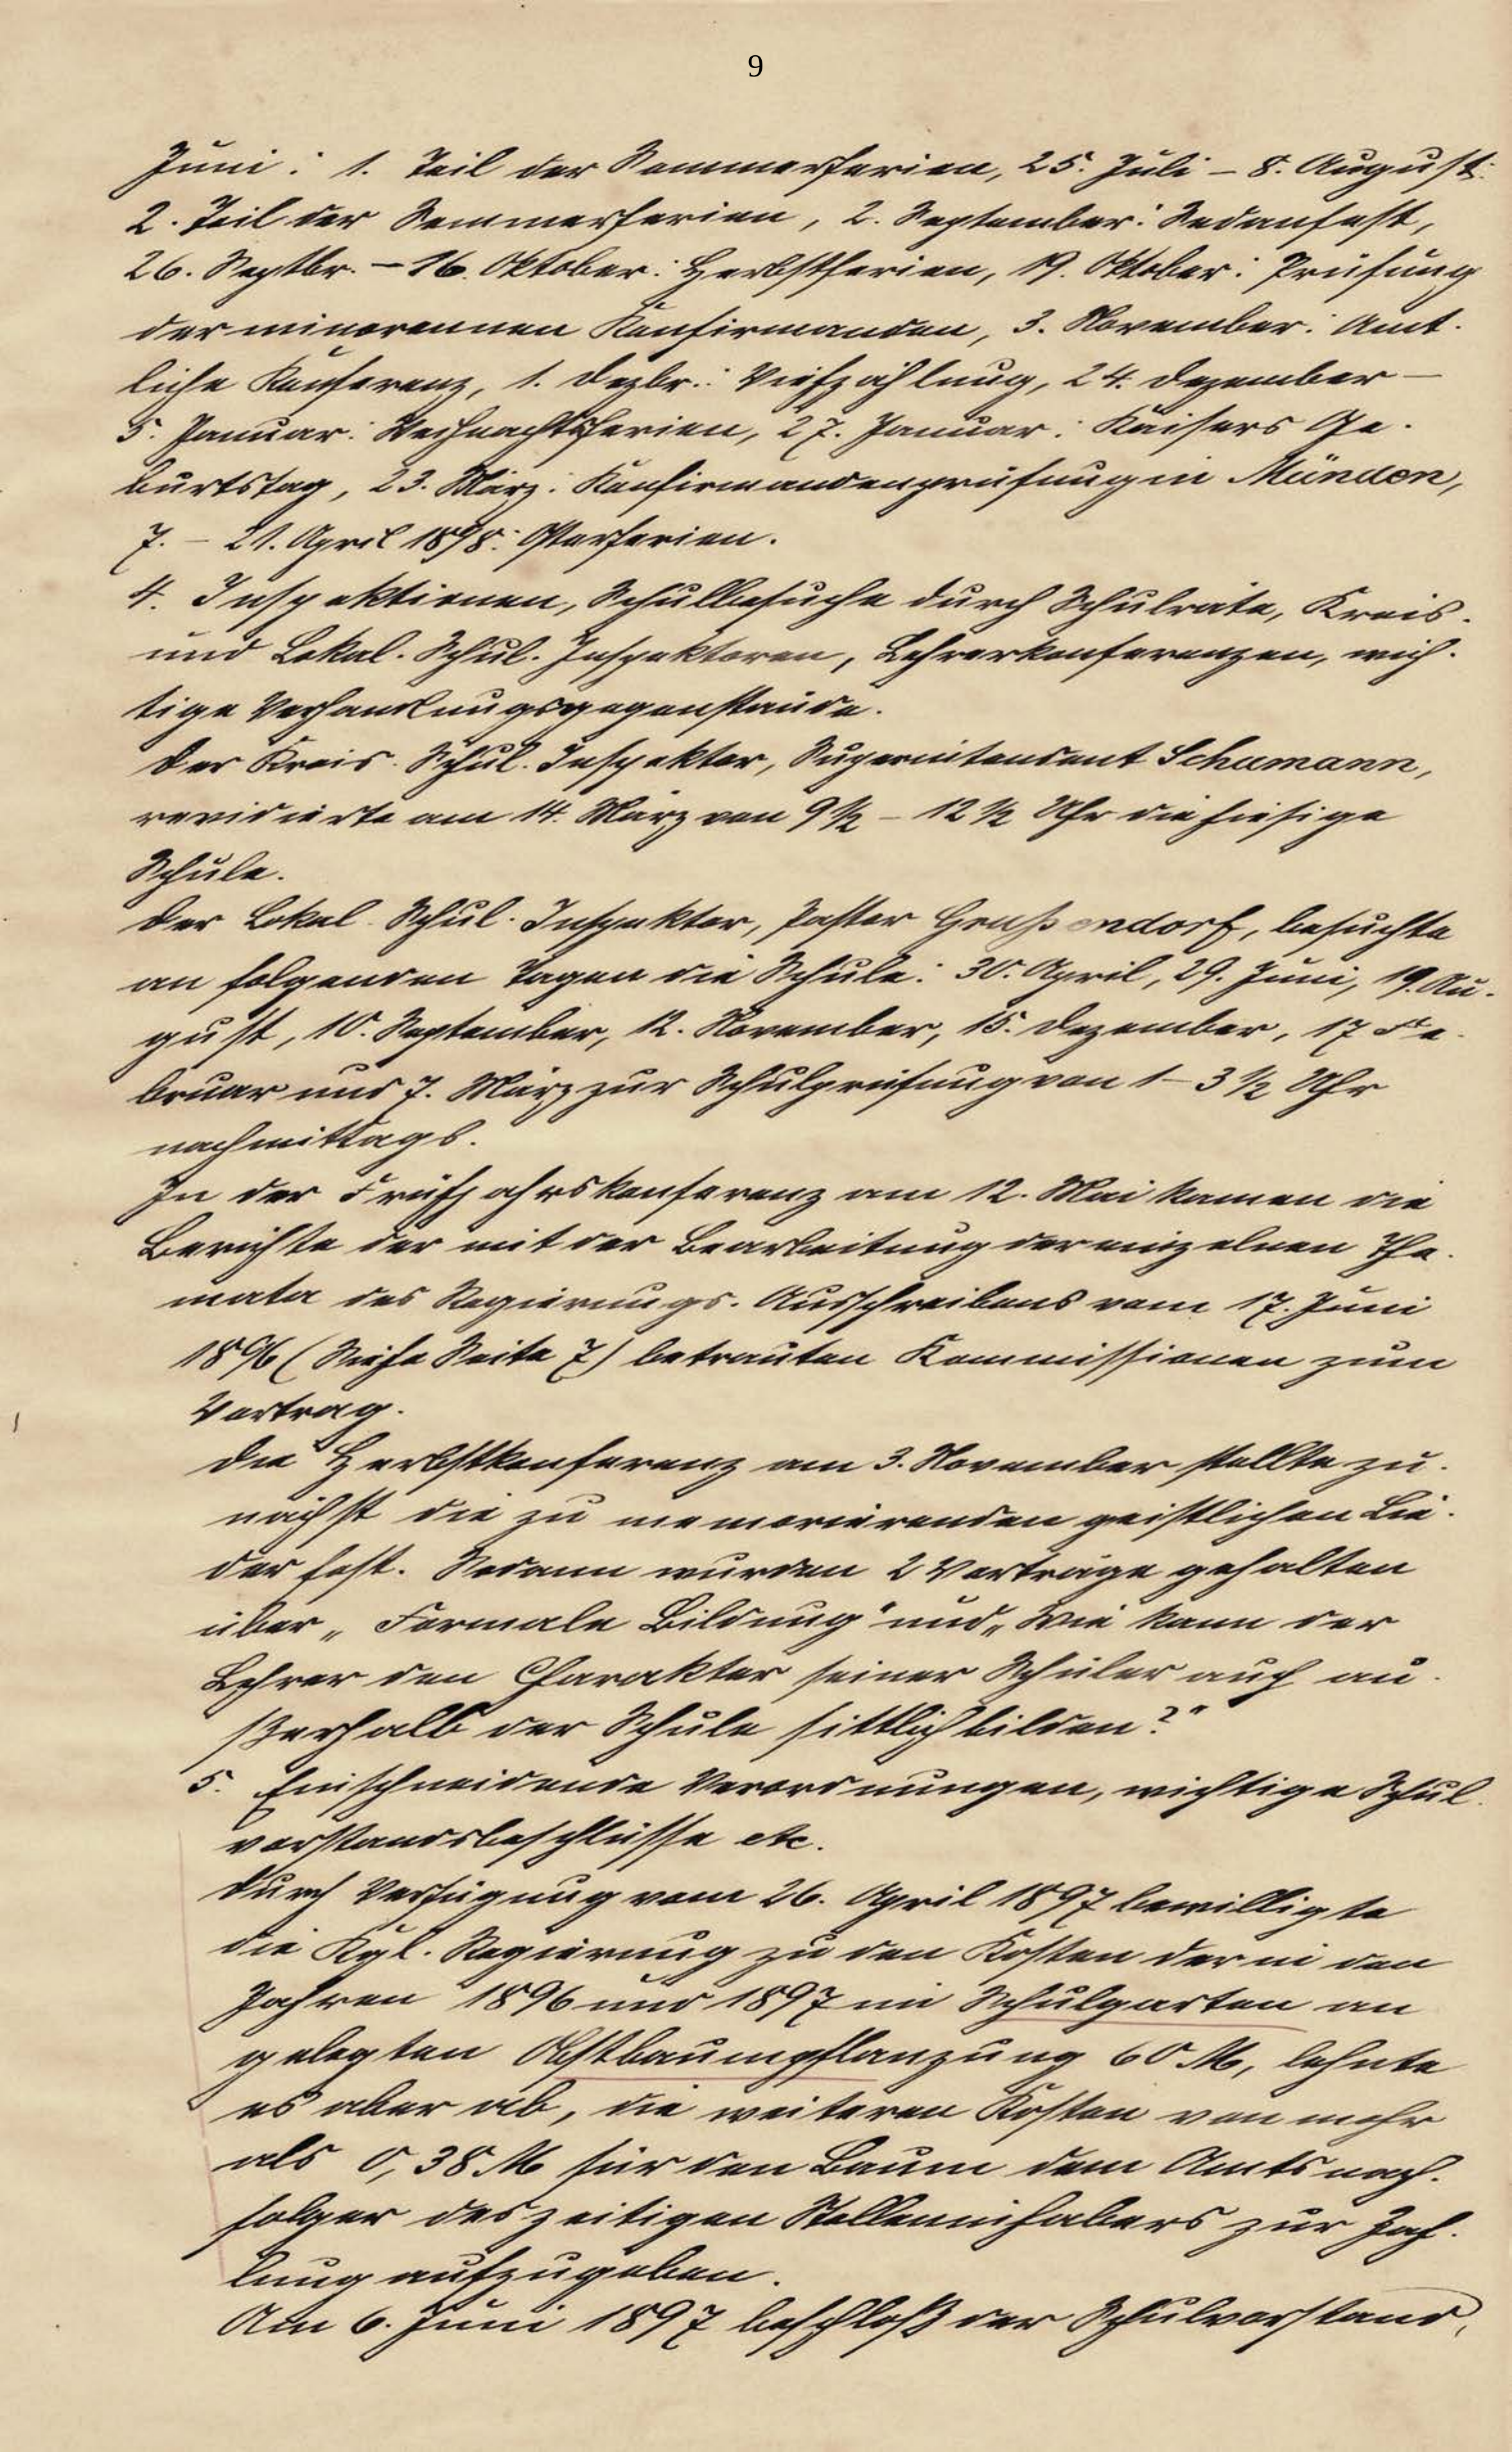 9
Juni: 1. Teil der Sommerferien, 25. Juli – 8. August:
2. Teil der Sommerferien, 2. September: Sedanfest,
26. Septbr. – 16. Oktober: Herbstferien, 19. Oktober: Prüfung
der minorennen Konfirmanden, 3. November: Amt-
liche Konferenz, 1. Dezbr.: Viehzählung, 24. Dezember –
5. Januar: Weihnachtsferien, 27. Januar: Kaisers Ge-
burtstag, 23. März: Konfirmandenprüfung in Münden,
7. – 21. April 1898: Osterferien.
4. Inspektionen, Schulbesuche durch Schulräte, Kreis-
und Lokal-Schul-Inspektoren, Lehrerkonferenzen, wich-
tige Verhandlungsgegenstände.
Der Kreis-Schul-Inspektor, Superintendent Schumann,
revidierte am 14. März von 9½ – 12½ Uhr die hiesige
Schule.
Der Lokal-Schul-Inspektor, Pastor besuchte
an folgenden Tagen die Schule: 30. April, 29. Juni, 19. Au-
gust, 10. September, 12. November, 15. Dezember, 17 Fe-
bruar und 7. März zur Schulprüfung von 1 – 3½ Uhr
nachmittags.
In der Frühjahrskonferenz am 12. Mai kamen die
Berichte der mit der Bearbeitung der einzelnen The-
mata des Regierungs-Ausschreibens vom 17. Juni
1896 (Siehe Seite 7) betrauten Kommissionen zum
Vortrag.
Die Herbstkonferenz am 3. November stellte zu-
nächst die zu memorierenden geistlichen Lie-
der fest. Sodann wurden 2 Vorträge gehalten
über „Formale Bildung" und „Wie kann der
Lehrer den Charakter seiner Schüler auch au-
ßerhalb der Schule sittlich bilden?"
5. Einschneidende Verordnungen, wichtige Schul-
vorstandsbeschlüsse etc.
Durch Verfügung vom 26. April 1897 bewilligte
die Kgl. Regierung zu den Kosten der in den
Jahren 1896 und 1897 im Schulgarten an
gelegten Obstbaumpflanzung 60 M, lehnte
es aber ab, die weiteren Kosten von mehr
als 0,38 M für den Baum dem Amtsnach-
folger des zeitigen Stelleninhabers zur Zah-
lung aufzugeben.
Am 6. Juni 1897 beschloß der Schulvorstand,